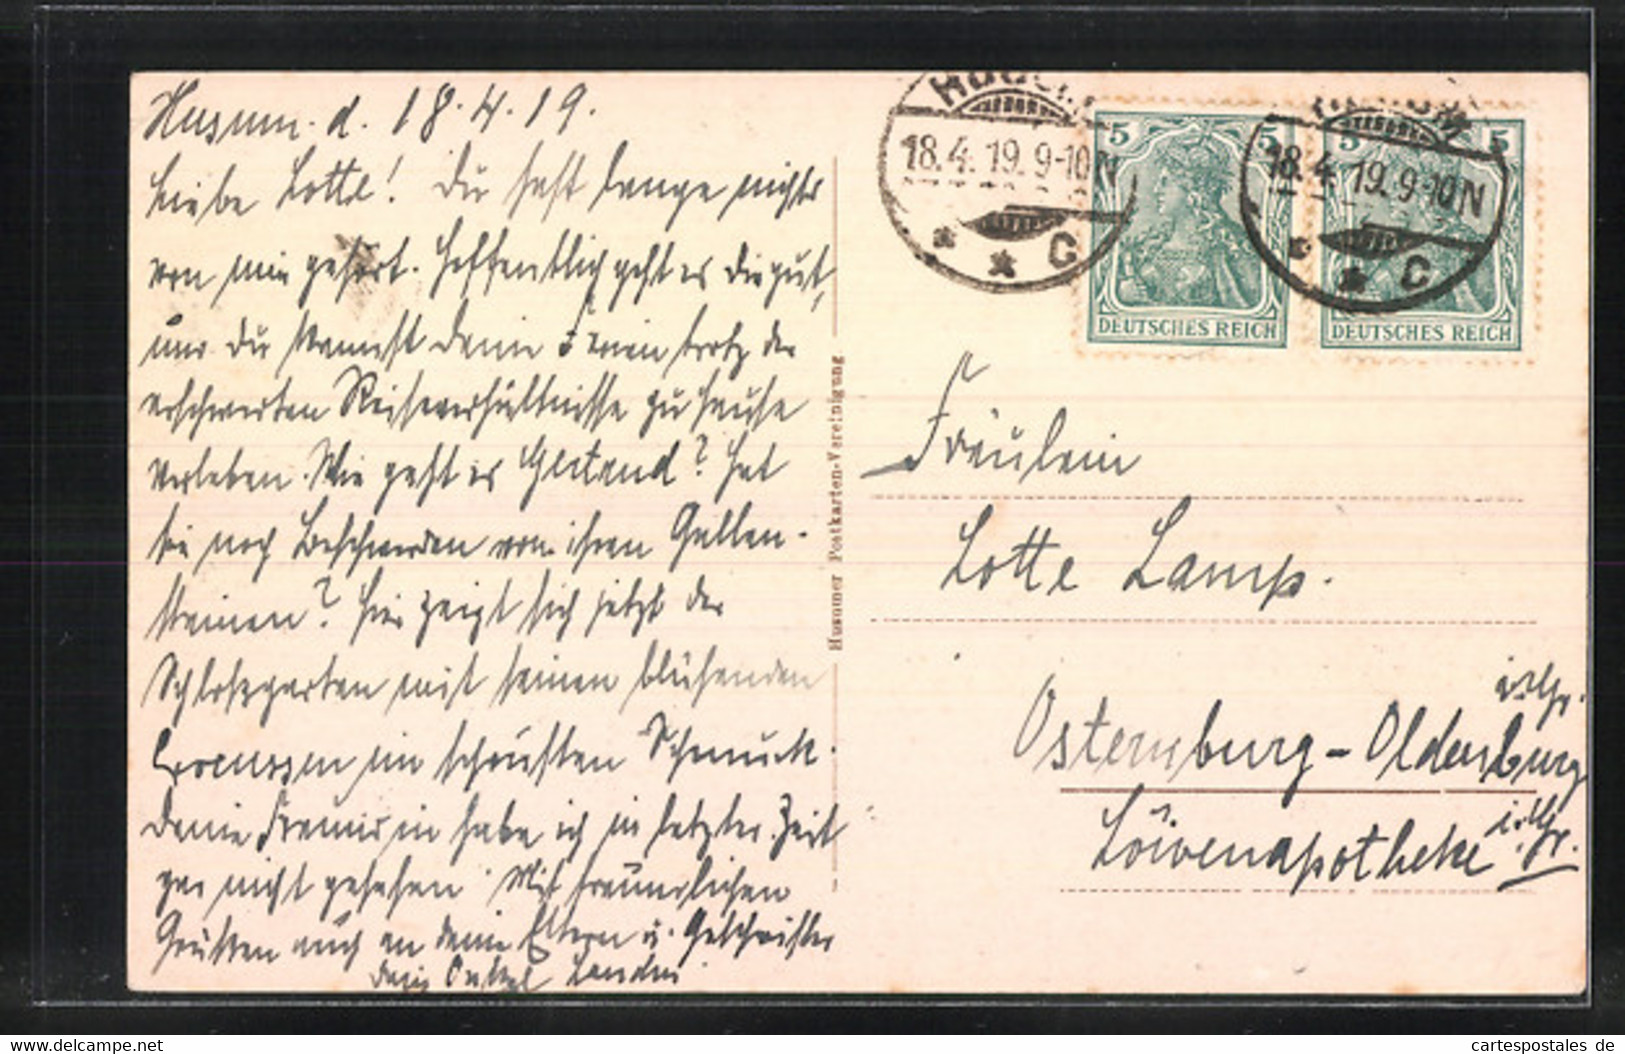 Husum. d. 18.4.19.
Liebe Lotte! Du hast lange nichts
von mir gehört. Hoffentlich geht es Dir gut,
und Du kannst deine Ferien trotz der
erschwerten Reiseverhältnisse zu Hause
verleben. Wie geht es? Hat
sie noch Beschwerden von ihren Gallen-
steinen? Hier zeigt sich jetzt der
Schloßgarten mit seinen blühenden
Crocussen im schönsten Schmuck.
Deine Freundin habe ich in letzter Zeit
gar nicht gesehen. Mit freundlichen
Grüßen auch an deine Eltern u. Geschwister
Dein Onkel
Husumer Postkarten-Vereinigung
18.4.19.9-10N
* * C
5 5
DEUTSCHES REICH
18.4.19.9-10N
* * C
5 5
DEUTSCHES REICH
Fräulein
Lotte Lamp.
Osternburg-Oldenburg
i.Gr.
Löwenapotheke
i.Gr.
www.delcampe.net
cartespostales de